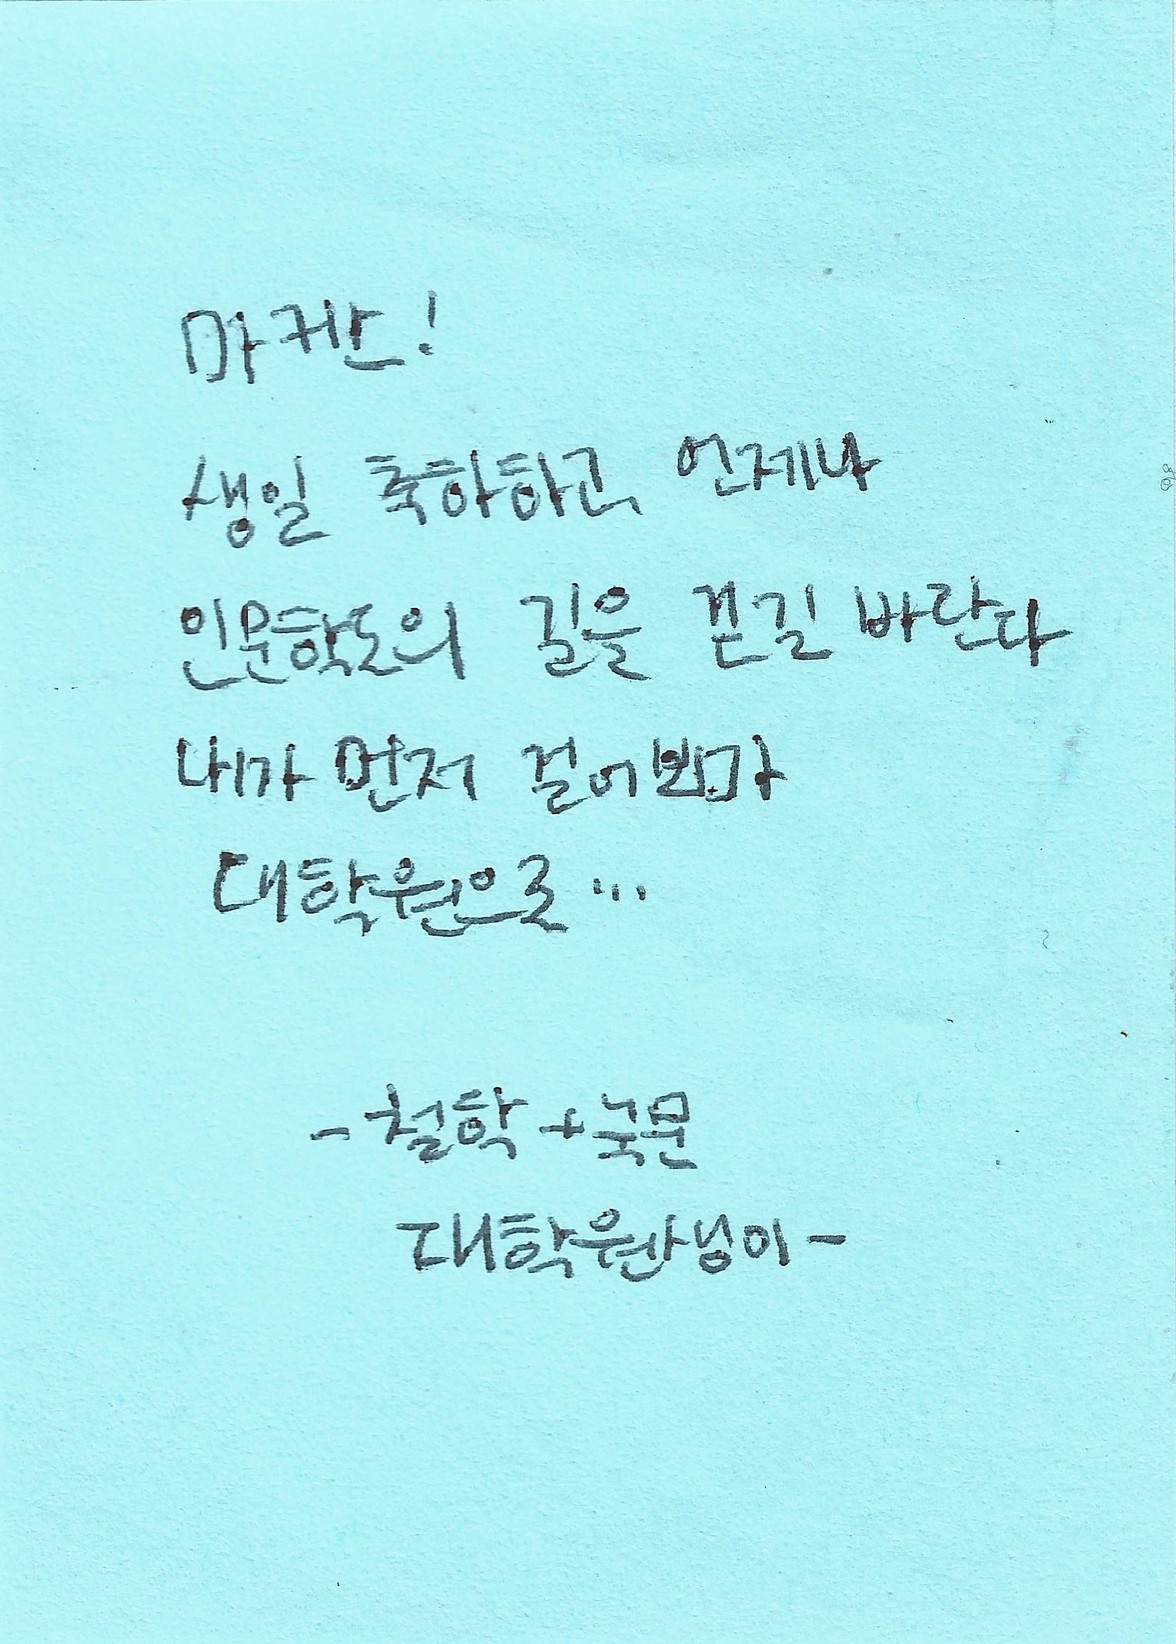 마카안!
생일 축하하고, 언제나
인문학도의 길을 걷길 바란다
내가 먼저
대학원으로...
-철학+국문
대학원생이-